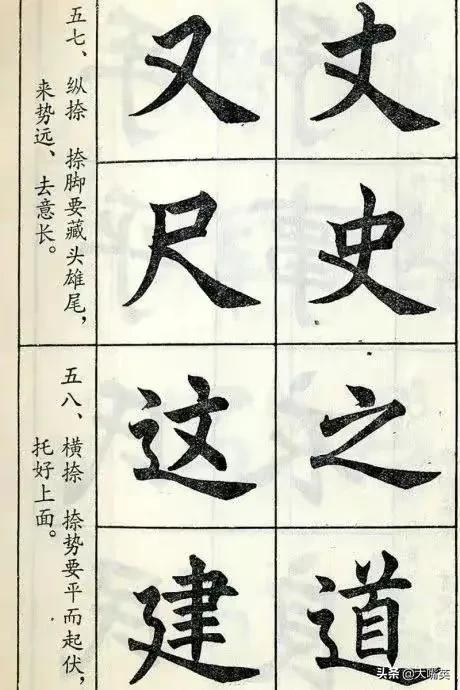 五七、纵捺 捺脚要藏头雄尾，
来势远、去意长。
又 丈
尺 史
五八、横捺 捺势要平而起伏，
托好上面。
这 之
建 道
头条 @大嘴英